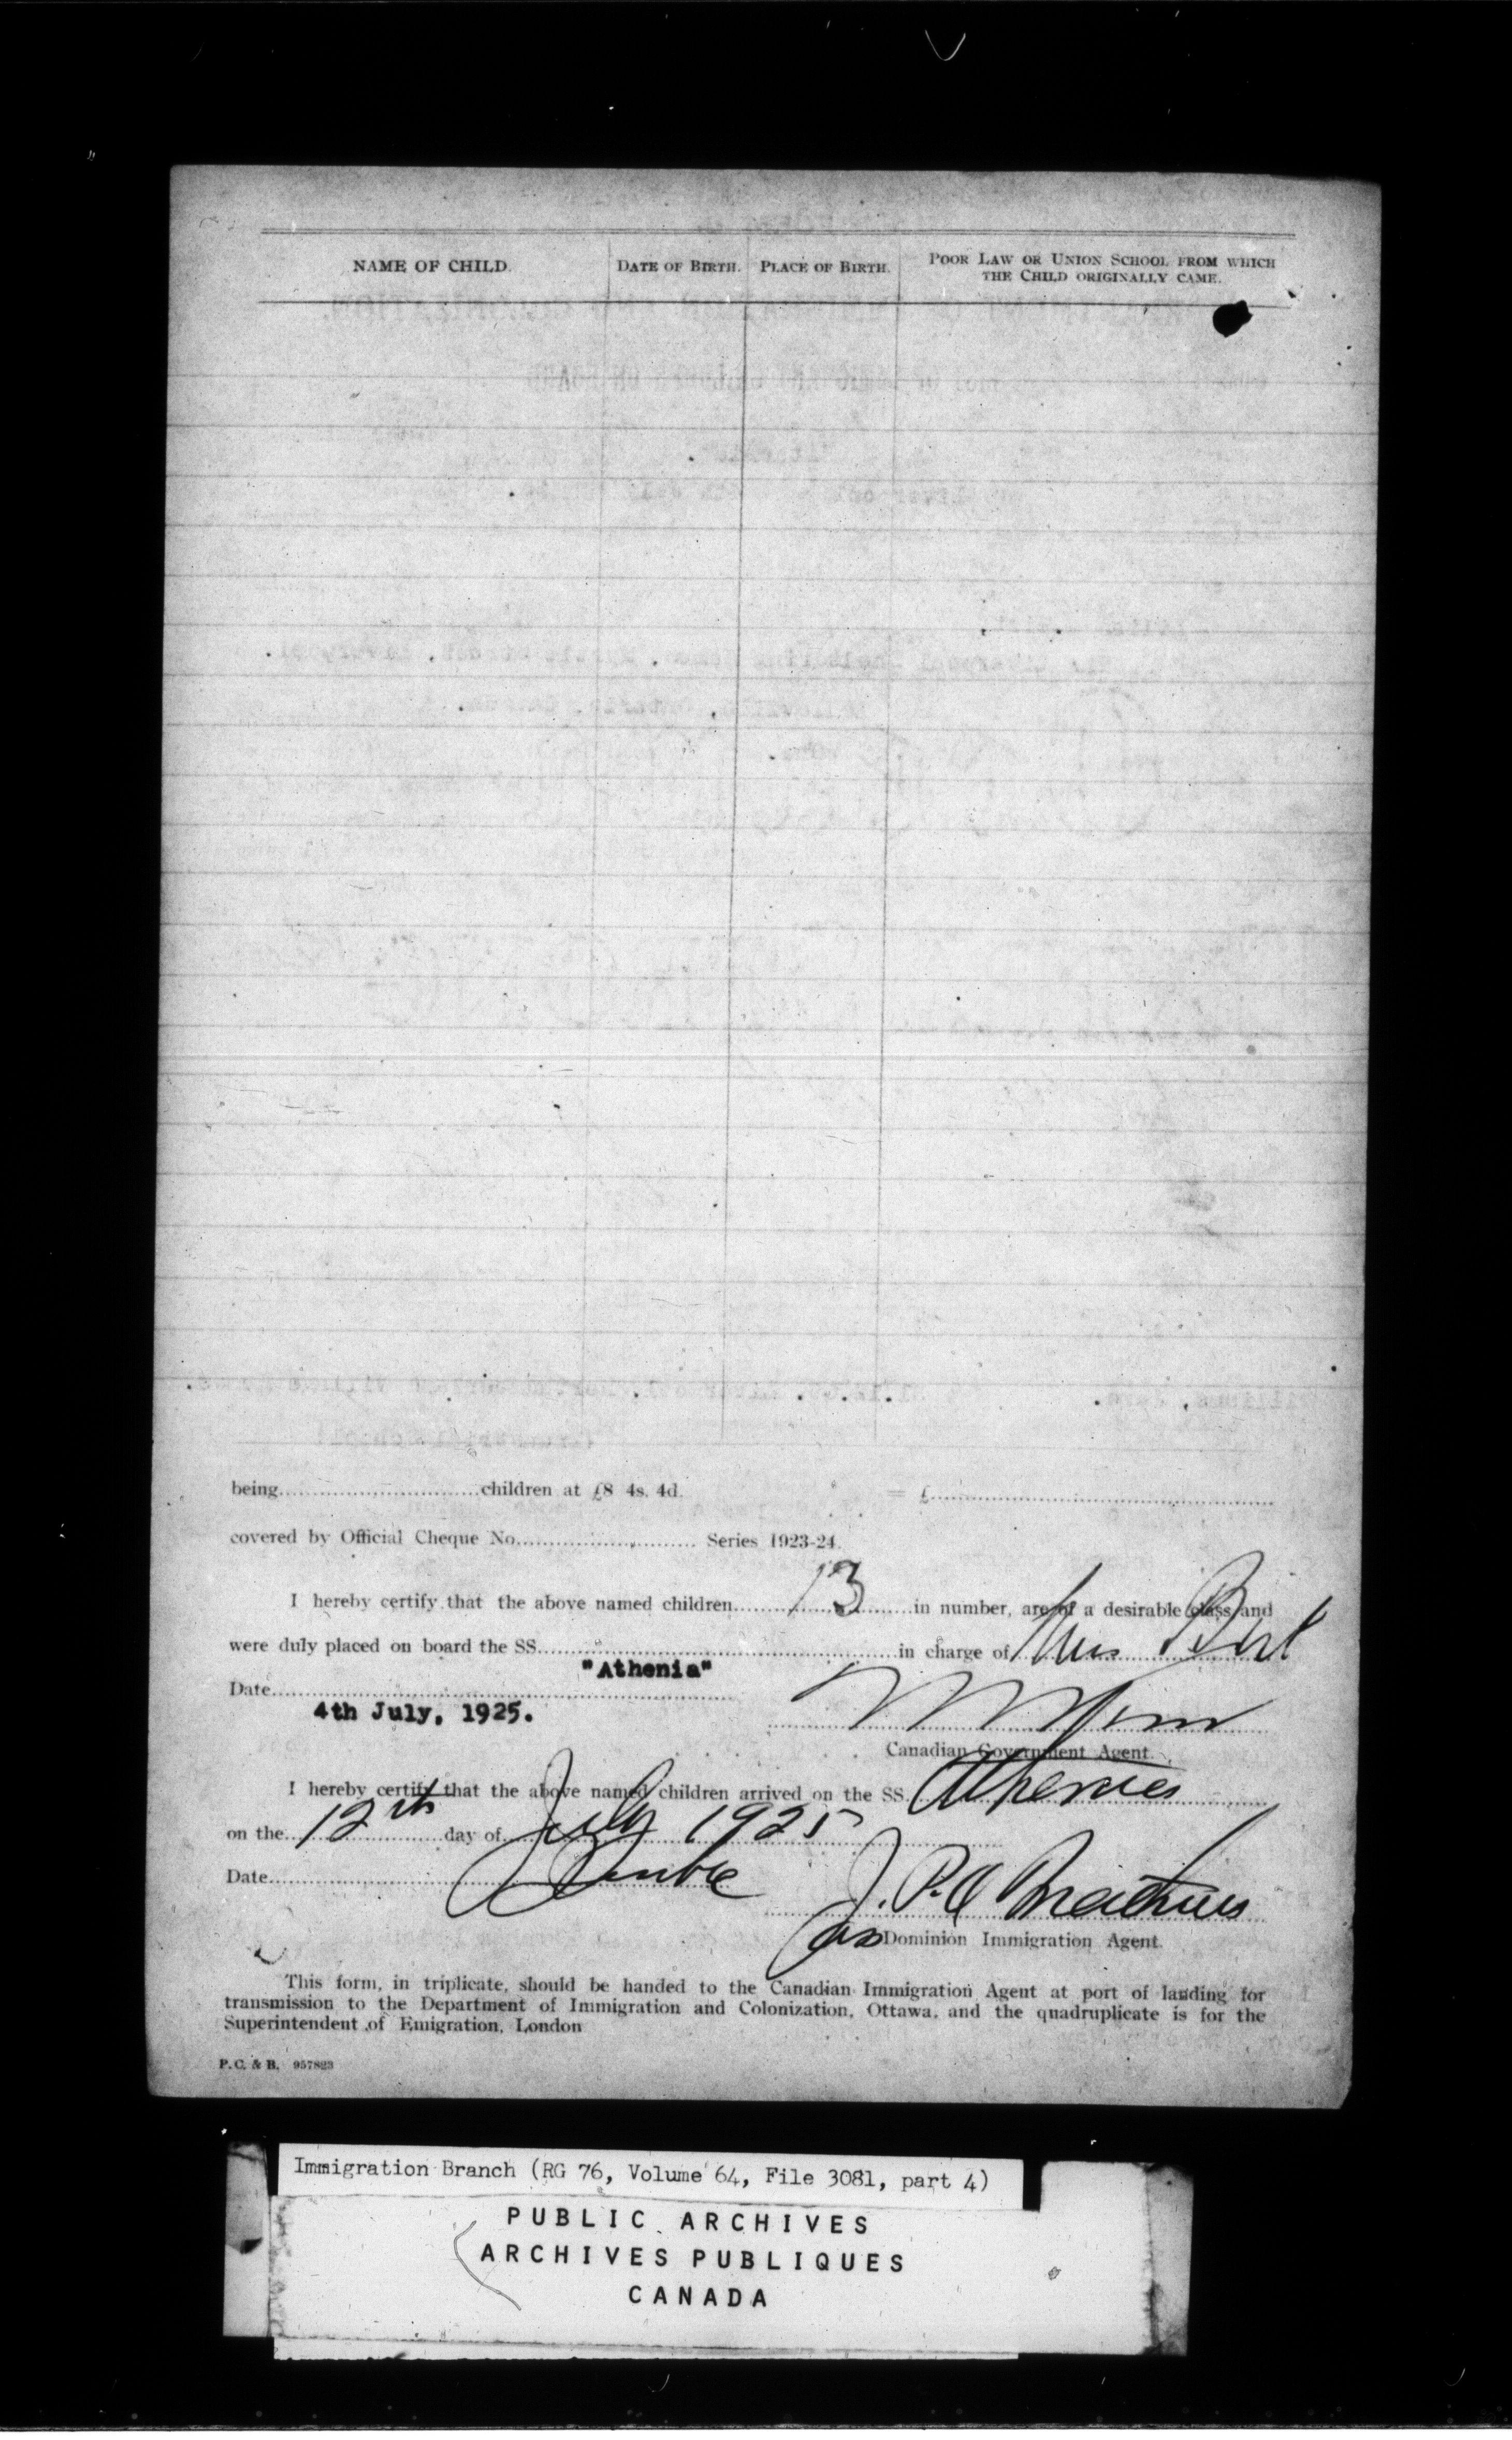 NAME OF CHILD. DATE OF BIRTH. PLACE OF BIRTH. POOR LAW OR UNION SCHOOL FROM WHICH
THE CHILD ORIGINALLY CAME.
being..............................children at £8 4s. 4d. = £..............................
covered by Official Cheque No.............................. Series 1923-24.
I hereby certify that the above named children 13 in number, are of a desirable class and
were duly placed on board the SS. in charge of Miss Birt
"Athenia"
Date
4th July, 1925.
Canadian Government Agent.
I hereby certify that the above named children arrived on the SS. Athenia
on the 12th day of July 1925
Date
Dominion Immigration Agent.
This form, in triplicate, should be handed to the Canadian Immigration Agent at port of landing for
transmission to the Department of Immigration and Colonization, Ottawa, and the quadruplicate is for the
Superintendent of Emigration, London
P.C. & B. 957823
Immigration Branch (RG 76, Volume 64, File 3081, part 4)
PUBLIC ARCHIVES
ARCHIVES PUBLIQUES
CANADA